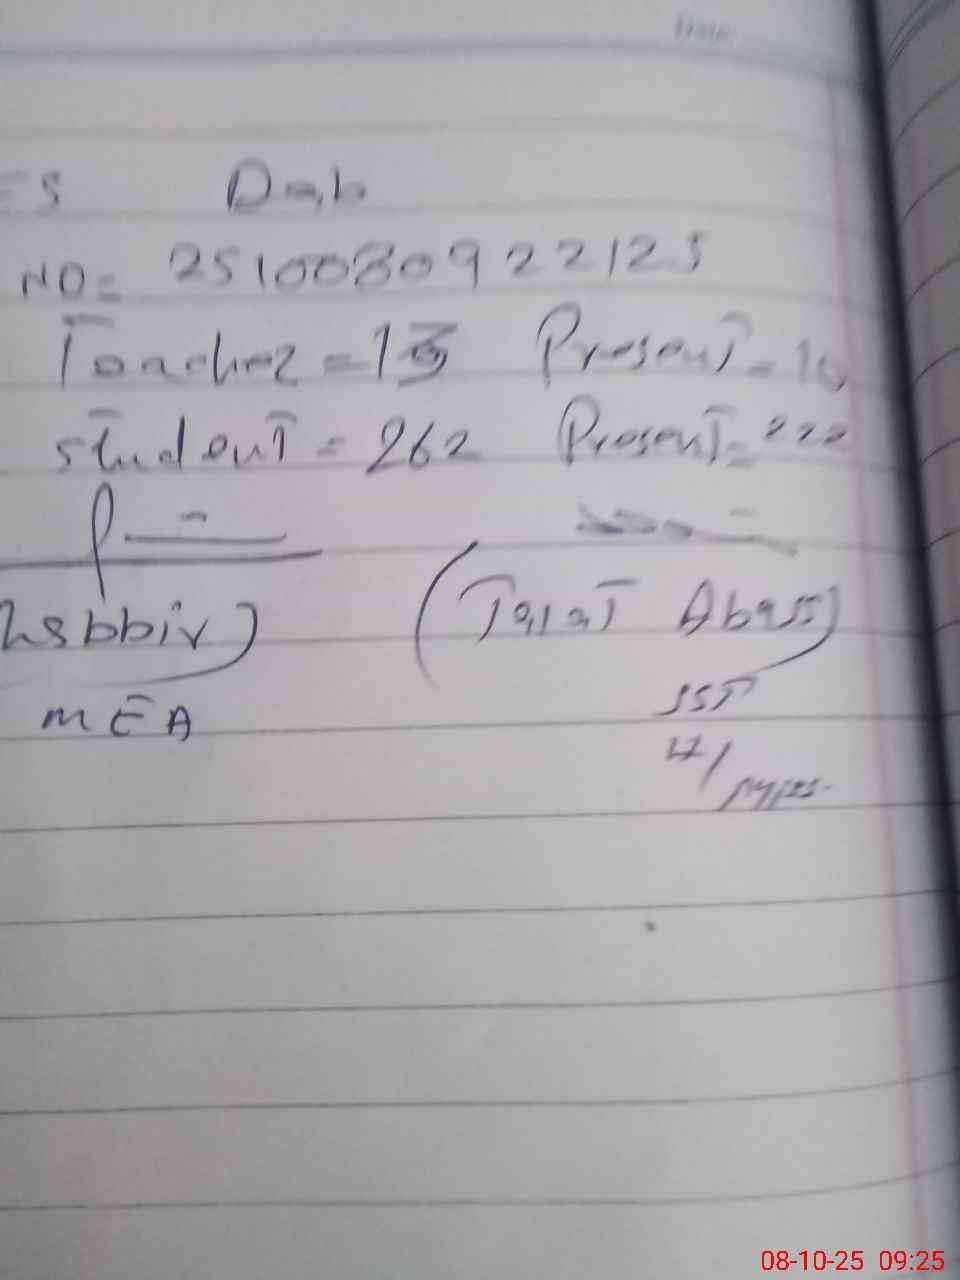 Date
ES Dab
NO= 2510080922125
Teacher = 13 Present = 10
student = 262 Present = 222
(Talat Abass)
MEA
SST
08-10-25 09:25